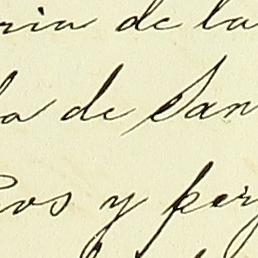 ria de la
la de San
os y per